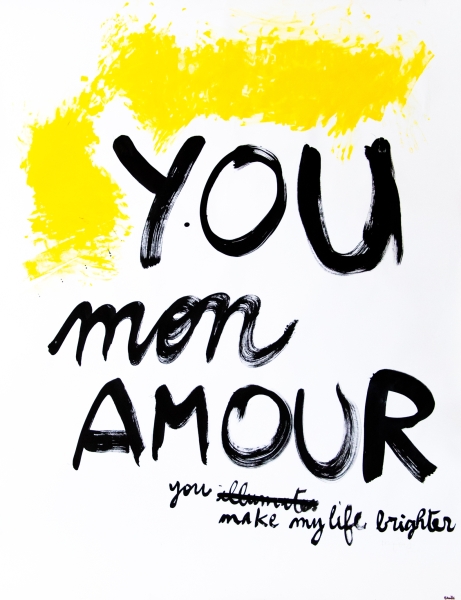 YOU
mon
AMOUR
you illuminates
make my life brighter